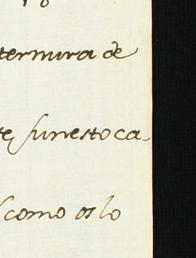 ternura de
te funesto ca-
como os lo